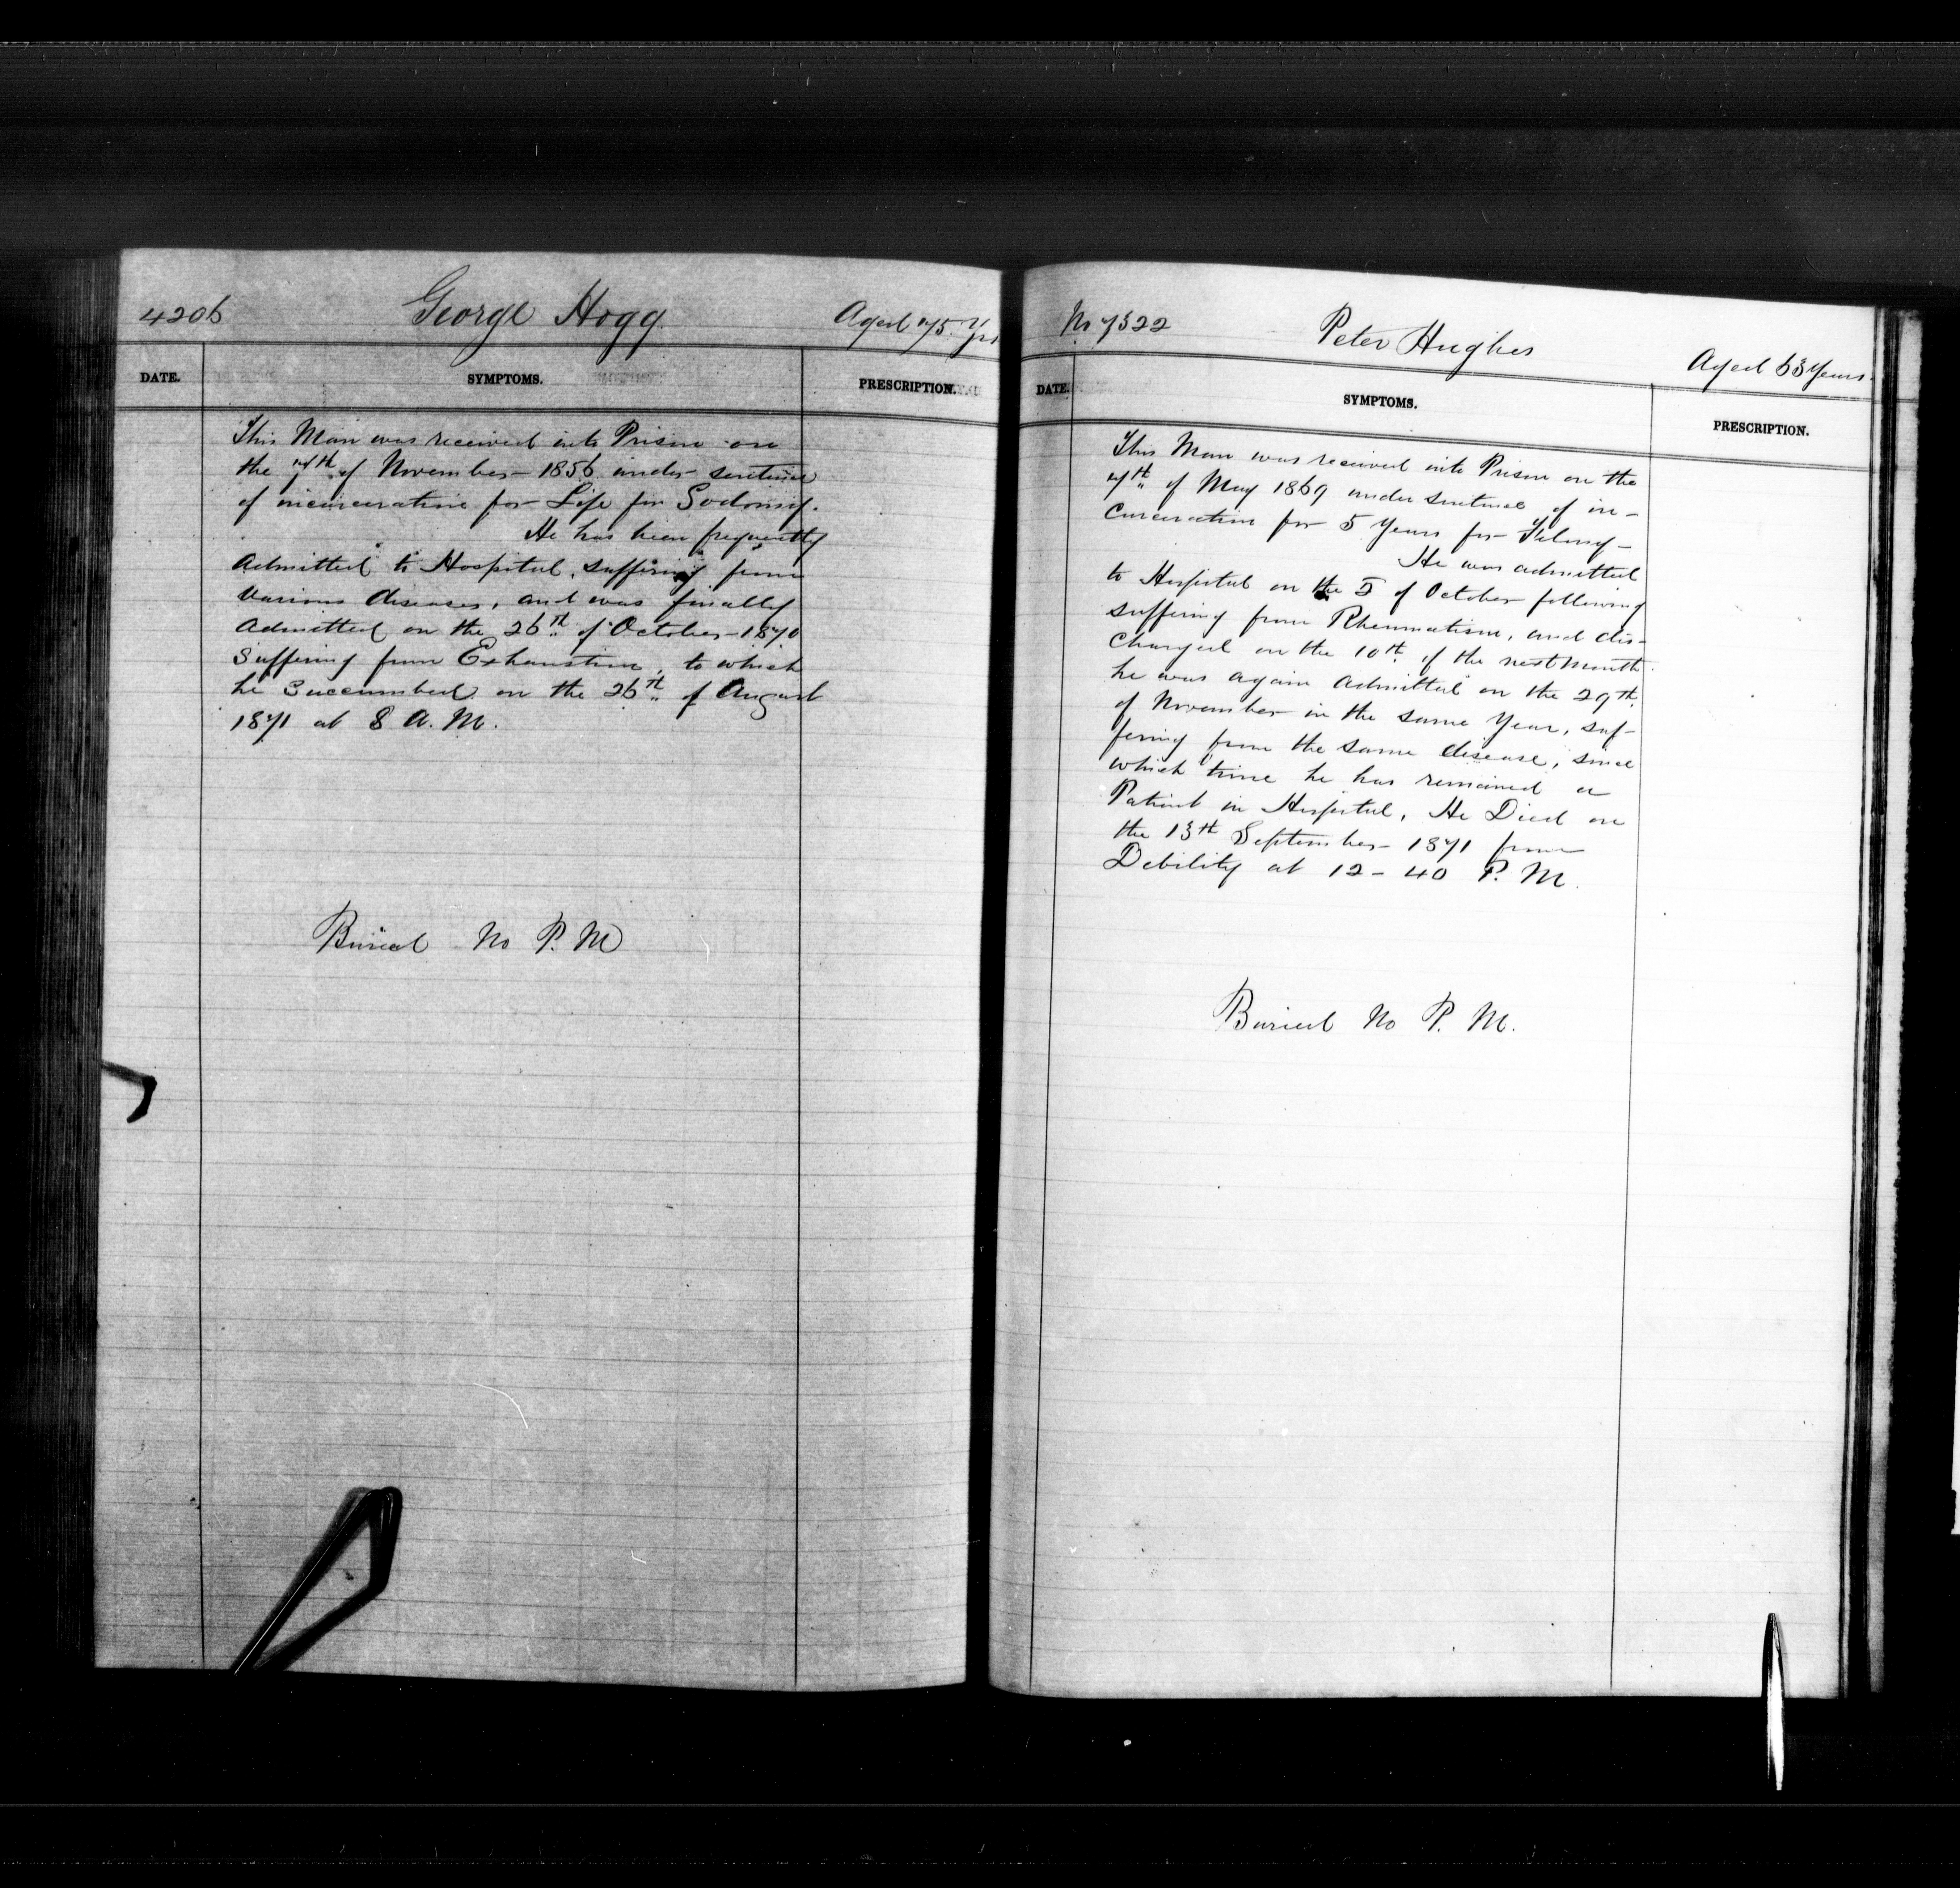 4206 George Hogg Aged 75 Yrs
DATE. SYMPTOMS. PRESCRIPTION.
This Man was received into Prison on
the 7th of November 1856 under sentence
of incarceration for Life for Sodomy.
He has been frequently
admitted to Hospital, suffering from
various diseases, and was finally
admitted on the 26th of October 1870
suffering from Exhaustion, to which
he succumbed on the 26th of August
1871 at 8 A.M.
Buried No P. M
No 7322 Peter Hughes Aged 63 Years
DATE. SYMPTOMS. PRESCRIPTION.
This Man was received into Prison on the
7th of May 1869 under sentence of in-
carceration for 5 Years for Felony
He was admitted
to Hospital on the 5 of October following
suffering from Rheumatism, and dis-
charged on the 10th of the next month
he was again admitted on the 29th
of November in the same Year, suf-
fering from the same disease, since
which time he has remained a
Patient in Hospital, He Died on
the 13th September 1871 from
Debility at 12-40 P. M.
Buried No P. M.